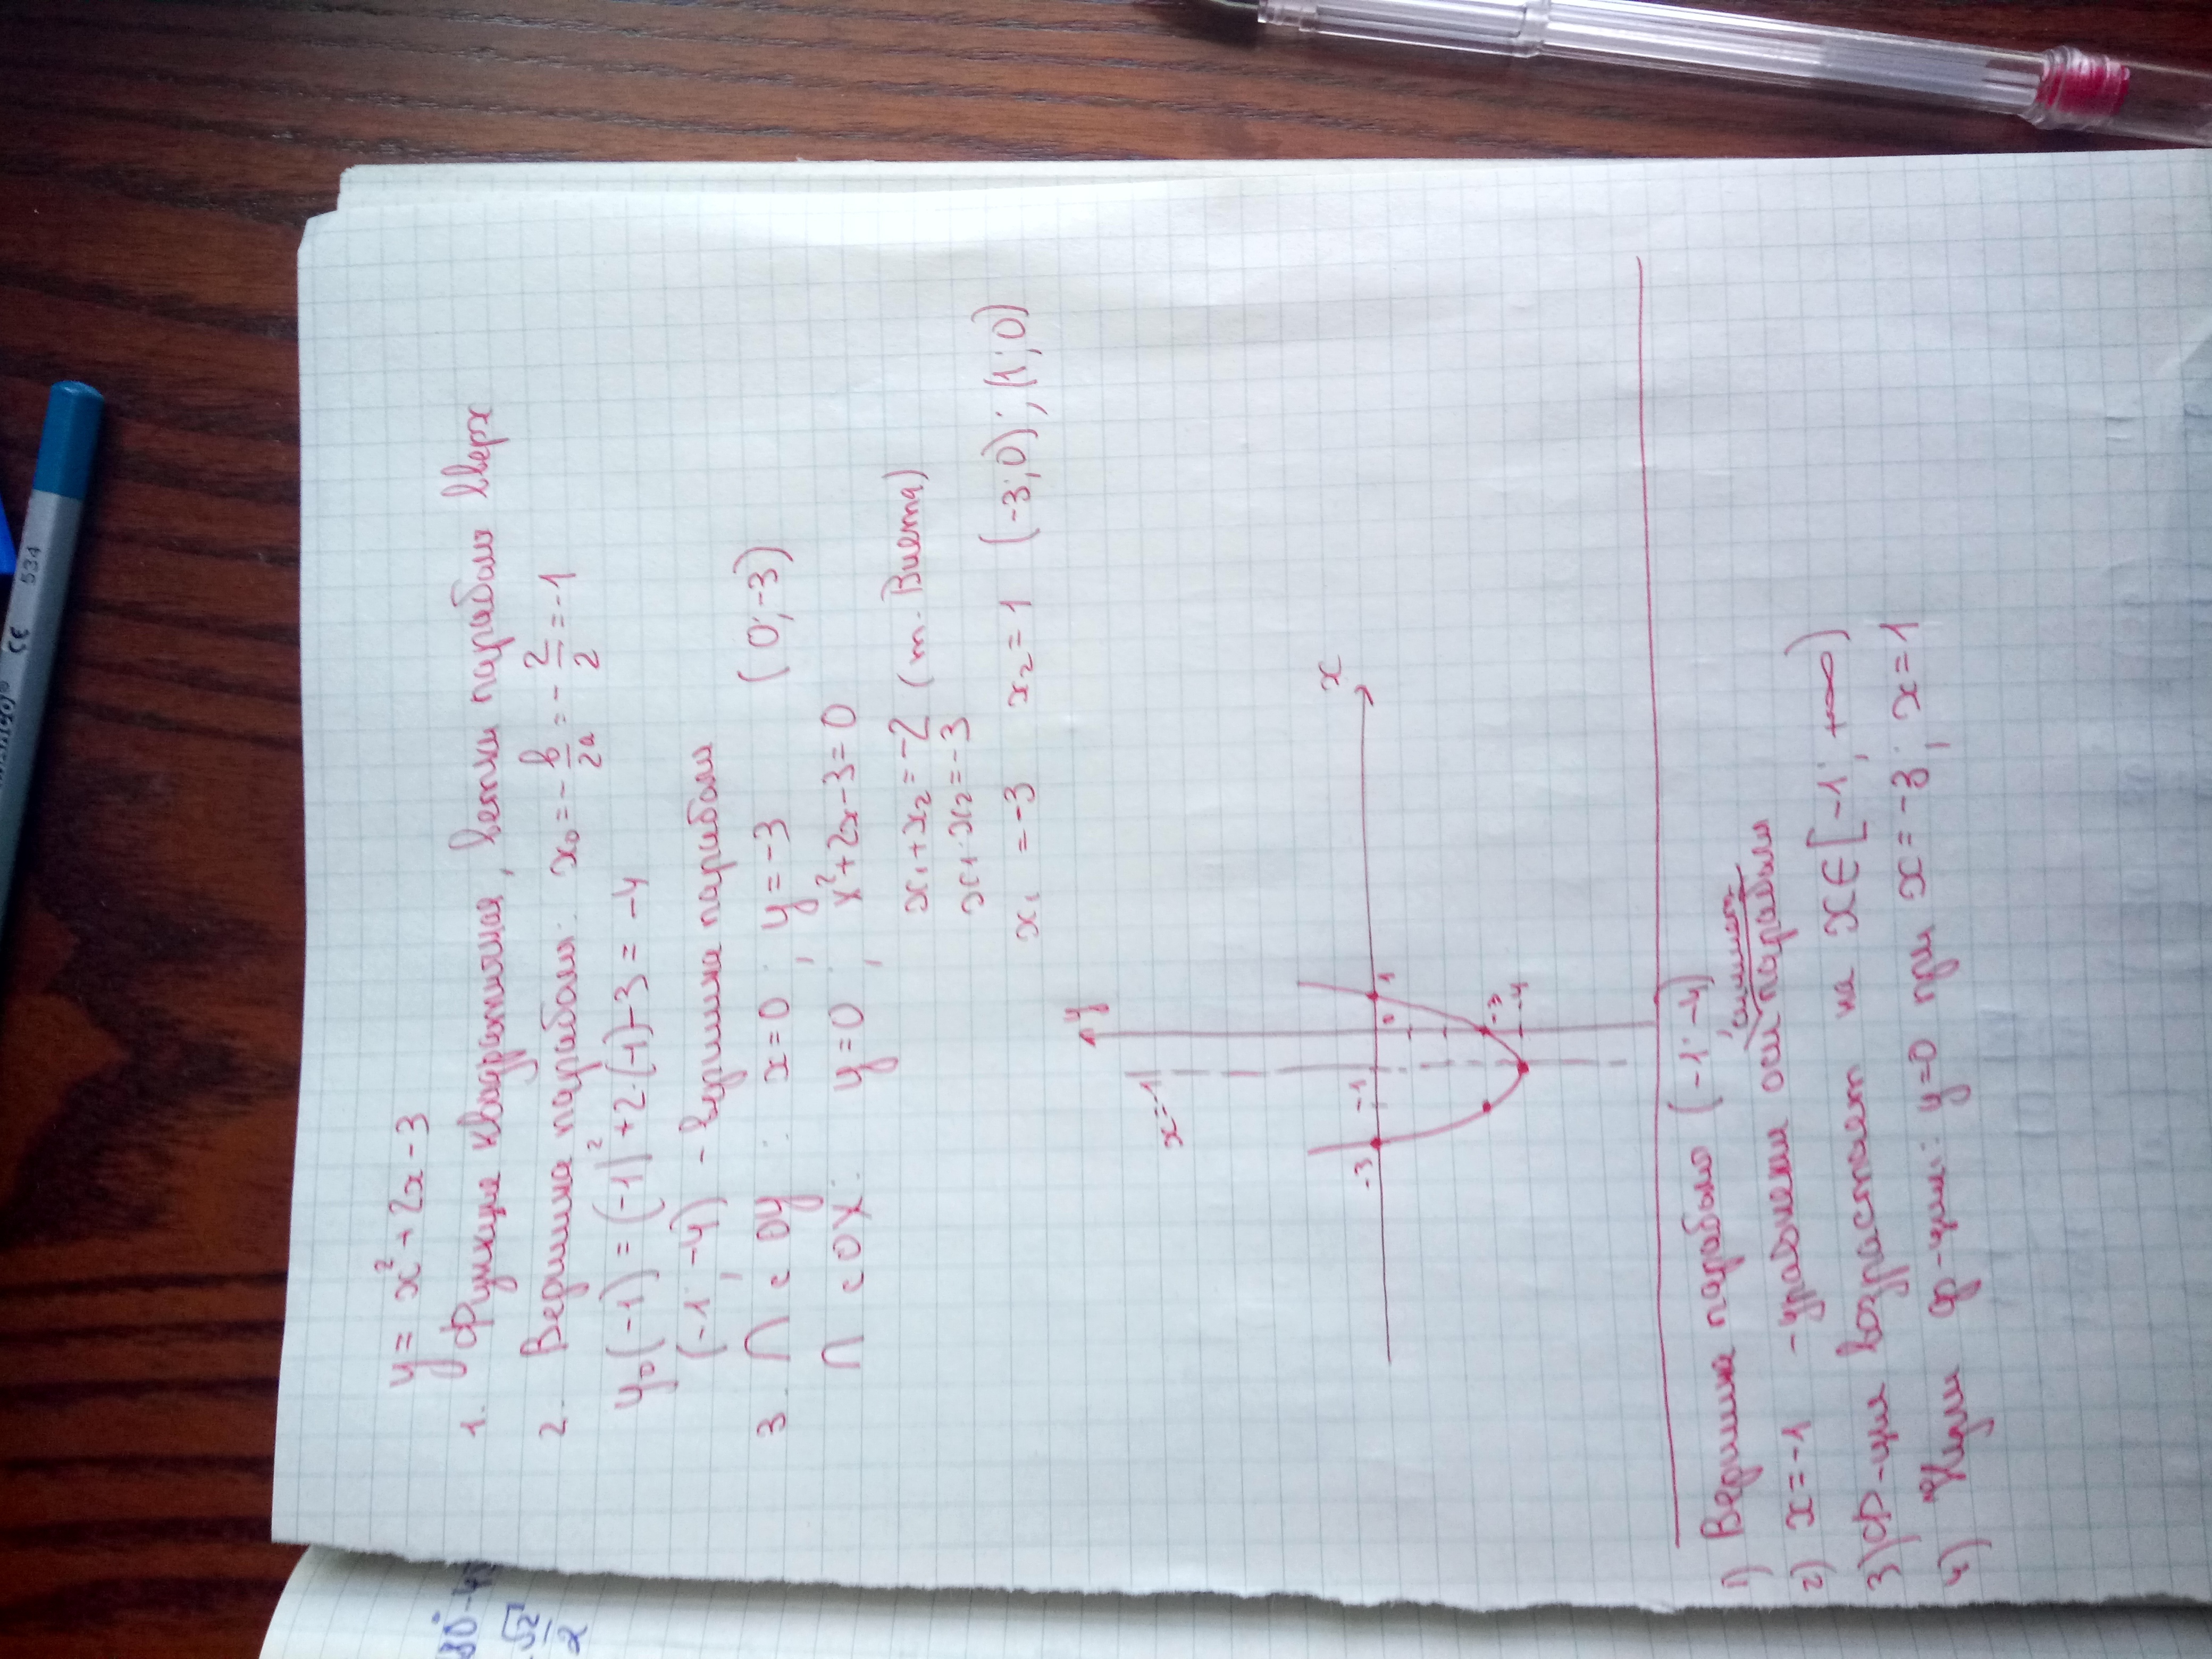 y = x² + 2x - 3
1. Функция квадратичная, ветки параболы вверх
2. Вершина параболы: x₀ = -в/2а = -2/2 = -1
y₀(-1) = (-1)² + 2·(-1) - 3 = -4
(-1; -4) - вершина параболы
3. ∩ с OY : x = 0 ; y = -3 (0; -3)
∩ с OX: y = 0 ; x² + 2x - 3 = 0
x₁ + x₂ = -2 (т. Виета)
x₁ · x₂ = -3
x₁ = -3 x₂ = 1 (-3; 0); (1; 0)
y
x = -1
x
-3
-1
0
1
-3
-4
1) Вершина параболы (-1; -4)
2) x = -1 - уравнения оси параболы
3) Ф-ция возрастает на x ∈ [-1; +∞)
4) "Нули ф-ции: y=0 при x = -3; x = 1
534
CE
180° - 45
√2
2